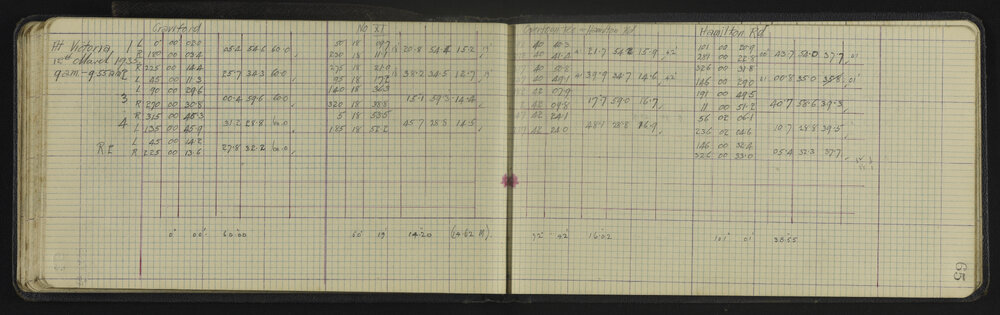 Crawford No XI Hamilton Rd
Mt Victoria 1 L 0 00 02.0 05.4 54.6 60.0 50 18 09.7 20.8 54.4 15.2 19' 40 40.3 21.7 54.2 15.9 42' 101 00 20.9 43.7 54.0 37.7 01
12th March 1935 R 180 00 03.4 230 18 11.1 40 41.4 281 00 22.8
9am-9.55am R 225 00 14.4 25.7 34.3 60.0 275 18 21.0 38.2 34.5 12.7 19' 40 50.8 39.9 34.7 14.6 42' 326 00 31.8 00.8 35.0 35.8 01'
L 45 00 11.3 95 18 40 49.1 146 00 29.0
3 L 90 00 29.6 00.4 59.6 60.0 140 18 36.3 15.1 59.3 14.4 42 07.9 17.7 59.0 16.7 191 00 49.5 40.7 58.6 39.3
R 270 00 30.8 320 18 38.8 42 09.8 11 00 51.2
4 R 315 00 45.3 31.2 28.8 60.0 5 18 53.5 45.7 28.8 14.5 42 24.1 48.1 28.8 16.9 56 02 06.1 10.7 28.8 39.5
L 135 00 45.9 185 18 52.2 42 24.0 236 02 04.6
R I L 45 00 14.2 27.8 32.2 60.0 146 00 32.4 05.4 32.3 37.7
R 225 00 13.6 326 00 33.0
0° 00' 60.00 50° 19' 14.20 (14.62 M) 42' 16.02 101° 01' 38.55
65